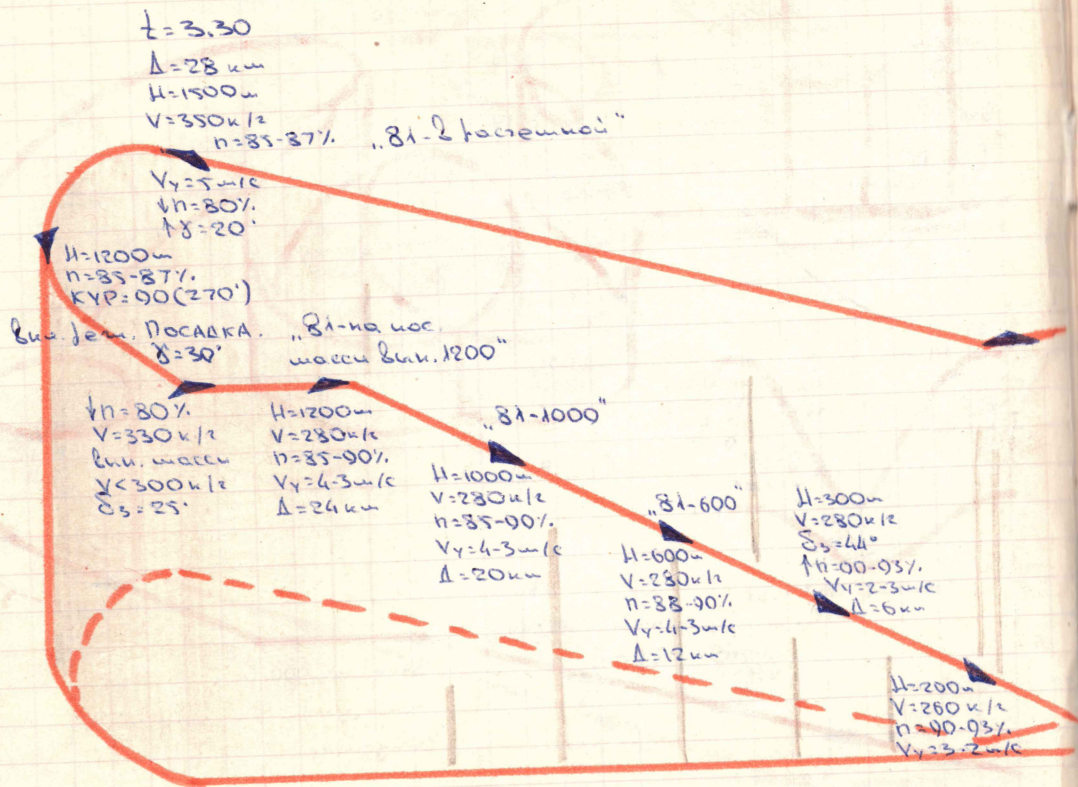 t=3.30
Δ=28 км
H=1500м
V=350к/г
n=85-87% „81-в расчетной"
Vy=5м/с
↓n=80%
↑γ=20°
H=1200м
n=85-87%
КУР=90(270°)
вкл. реж. ПОСАДКА.
γ=30°
„81-на пос.
шасси вып. 1200"
↓n=80%
V=330к/г
вып. шасси
V<300к/г
δз=25°
H=1200м
V=280к/г
n=85-90%
Vy=4-3м/с
Δ=24км
„81-1000"
H=1000м
V=280к/г
n=85-90%
Vy=4-3м/с
Δ=20км
„81-600"
H=600м
V=280к/г
n=88-90%
Vy=4-3м/с
Δ=12км
H=300м
V=280к/г
δз=44°
↑n=90-93%
Vy=2-3м/с
Δ=6км
H=200м
V=260к/г
n=90-93%
Vy=3-2м/с